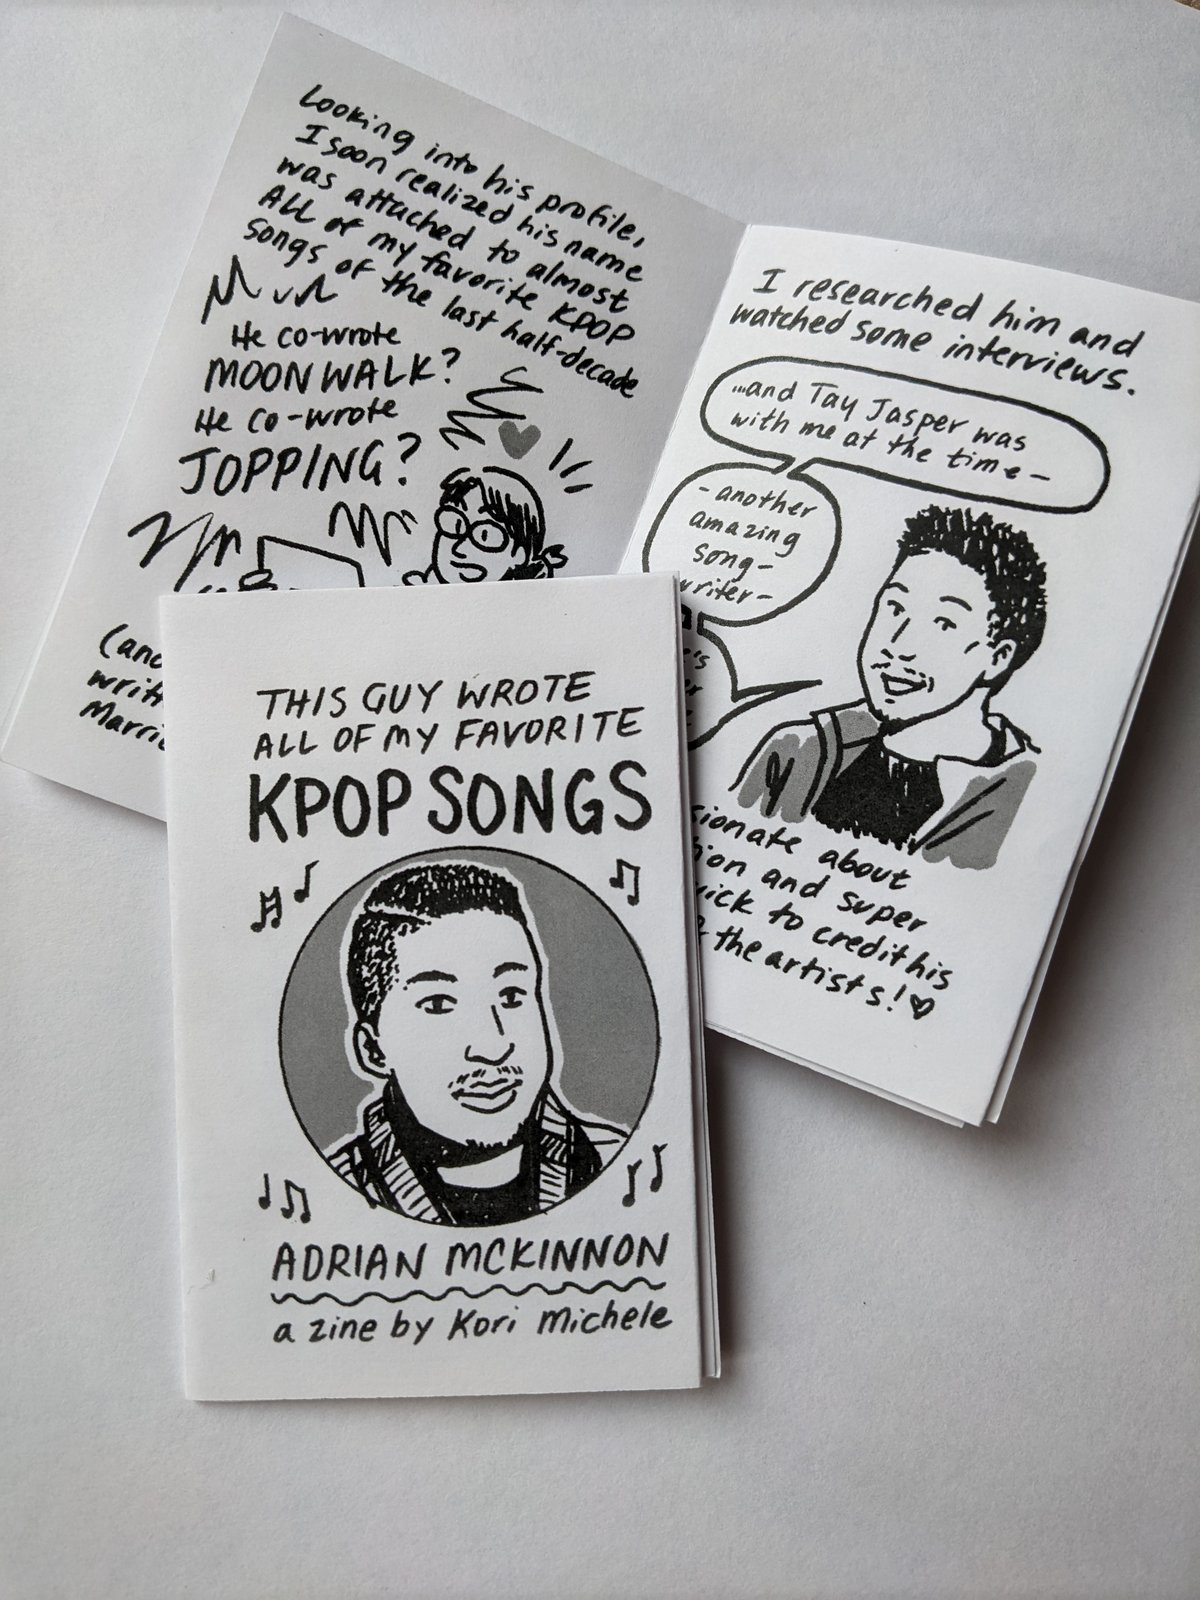 Looking into his profile,
I soon realized his name
was attached to almost
ALL of my favorite KPOP
songs of the last half-decade
He co-wrote
MOONWALK?
He co-wrote
JOPPING?
I researched him and
watched some interviews.
...and Tay Jasper was
with me at the time-
-another
amazing
song-
writer-
about
and super
to credit his
the artists!
THIS GUY WROTE
ALL OF MY FAVORITE
KPOP SONGS
ADRIAN MCKINNON
a zine by Kori Michele